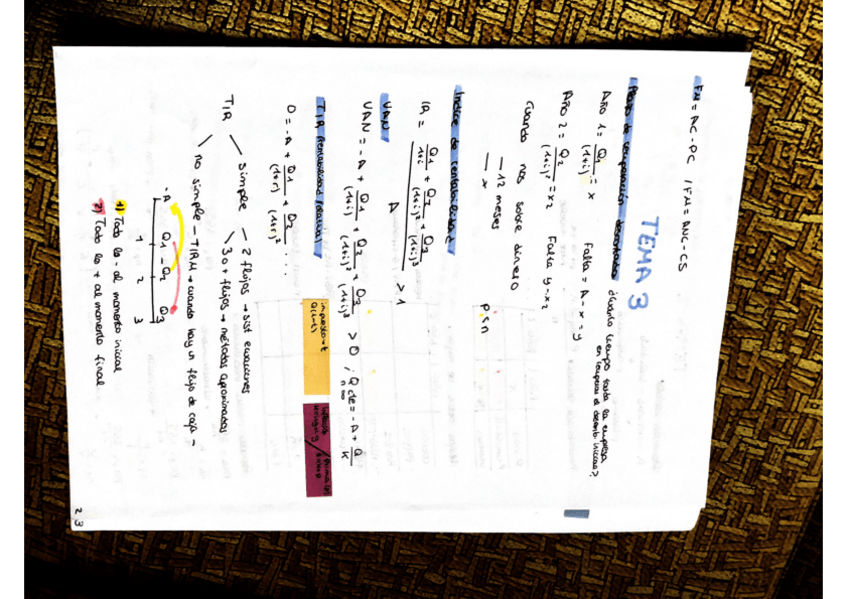 FM = AC - PC / FM = ANC - CS
TEMA 3
Plazo de recuperación descontado ¿cuánto tiempo tarda la empresa
en recuperar el desemb. inicial?
Año 1 = Q1/(1+i) = x Falta = A - x = y
Año 2 = Q2/(1+i)² = x2 Falta y - x2
Cuando nos sobre dinero
— 12 meses
— x
p < n
Índice de rentabilidad
IR = Q1/1+i + Q2/(1+i)² + Q3/(1+i)³ / A > 1
VAN
VAN = -A + Q1/(1+i) + Q2/(1+i)² + Q3/(1+i)³ > 0 ; Q cte = -A + Q/K
n=∞
TIR Rentabilidad (relativa)
0 = -A + Q1/(1+r) + Q2/(1+r)² ...
impuesto = t
Q(1-t)
TIR
simple — 2 flujos → sist ecuaciones
3 o + flujos → métodos aproximados
no simple - TIRM → cuando hay un flujo de caja -
-A Q1 -Q2 Q3
1 2 3
1) Todo lo - al momento inicial
2) Todo lo + al momento final
23